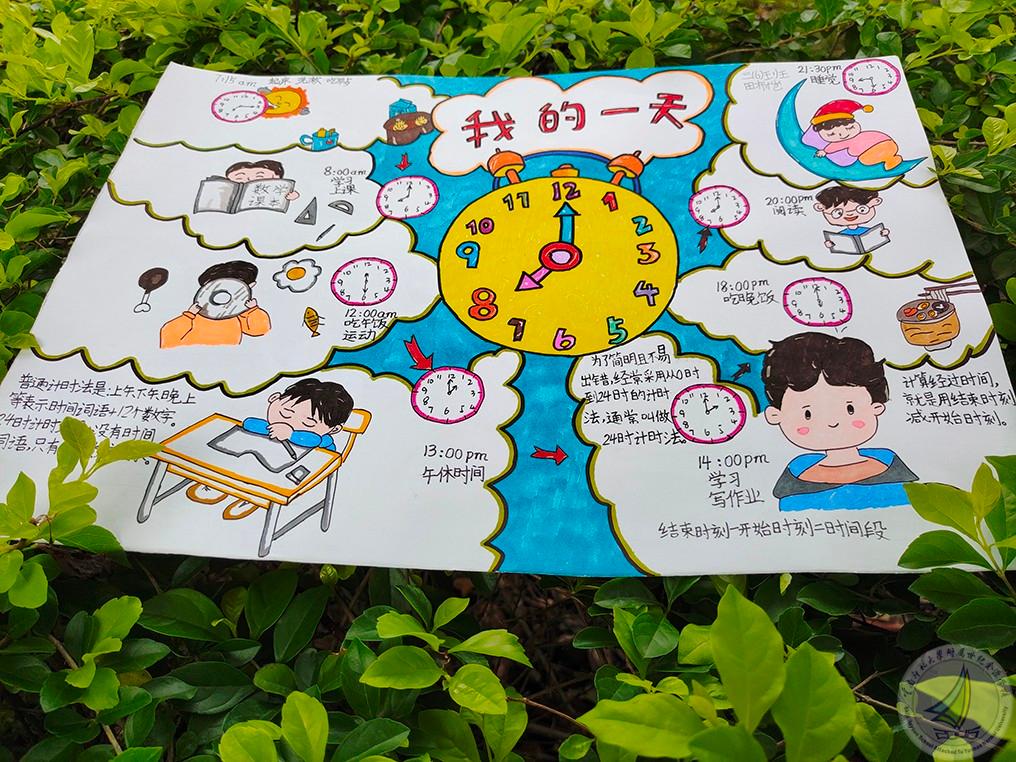 我的一天
7:15am 起床 洗漱 吃早
数学
课本
8:00am
学习
上课
12:00am
吃午饭
运动
普通计时法是:上午、下午、晚上
等表示时间词语+12个数字。
24时计时
没有时间
词语,只有
13:00pm
午休时间
12
1
2
3
4
5
6
7
8
9
10
11
21:30pm
睡觉
20:00pm
阅读
18:00pm
吃晚饭
为了简明且不易
出错,经常采用从0时
到24时的计时
法,通常叫做
24时计时法。
14:00pm
学习
写作业
计算经过时间,
就是用结束时刻
减开始时刻。
结束时刻-开始时刻=时间段